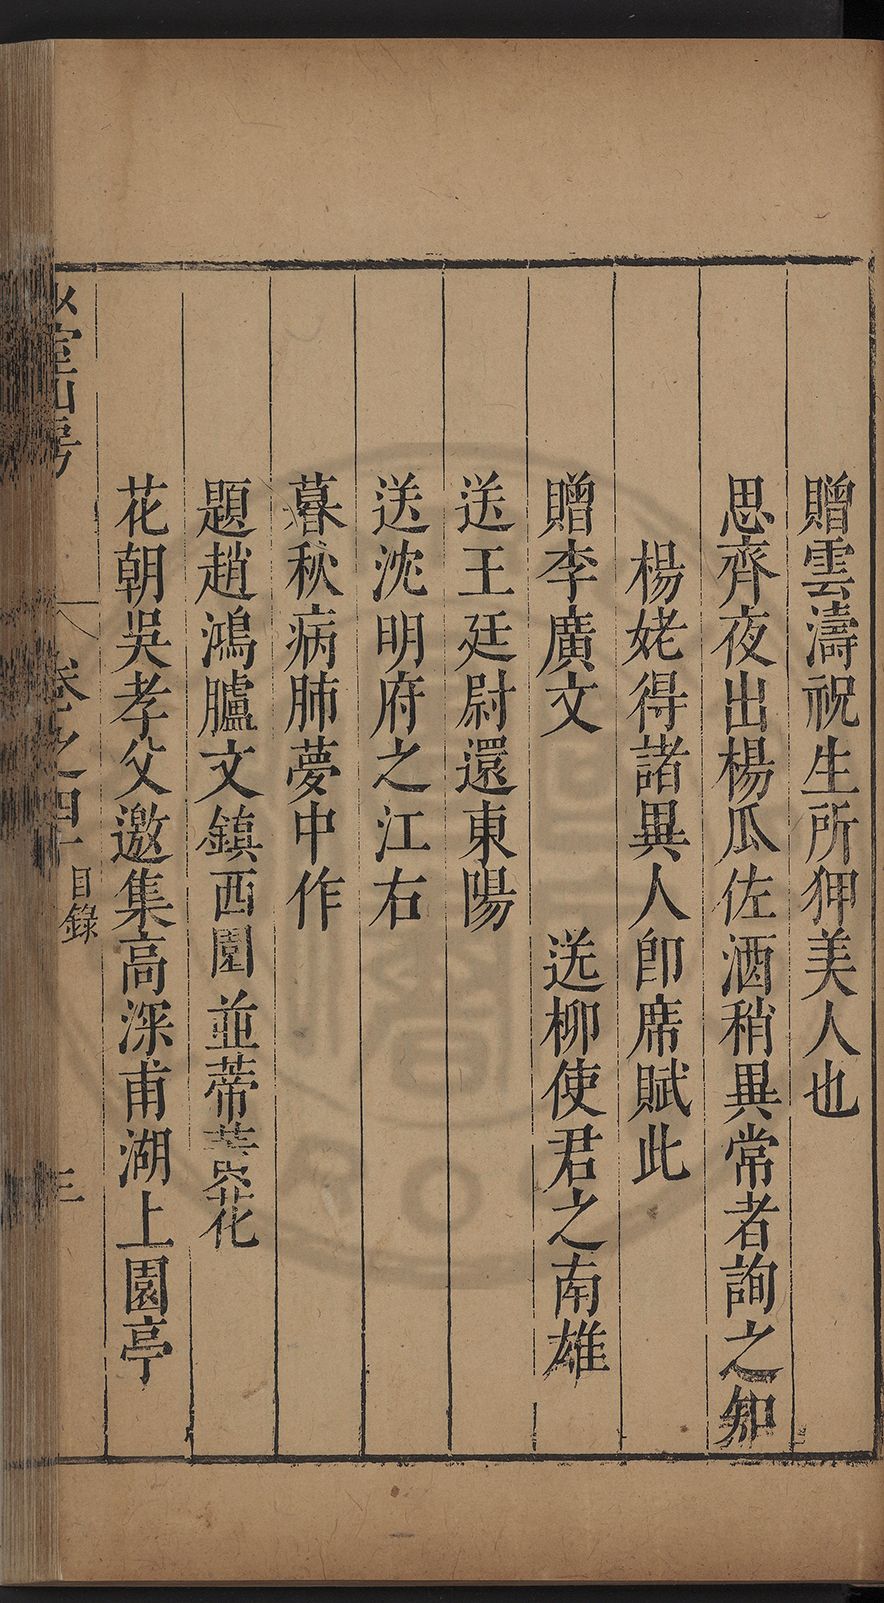 贈雲濤祝生所狎美人也
思齊夜出楊瓜佐酒稍異常者詢之知
楊姥得諸異人卽席賦此
贈李廣文　送柳使君之南雄
送王廷尉還東陽
送沈明府之江右
暮秋病肺夢中作
題趙鴻臚文鎮西園並蒂芙蓉花
花朝吳孝父邀集高深甫湖上園亭
室山房　卷之四十　目錄　三